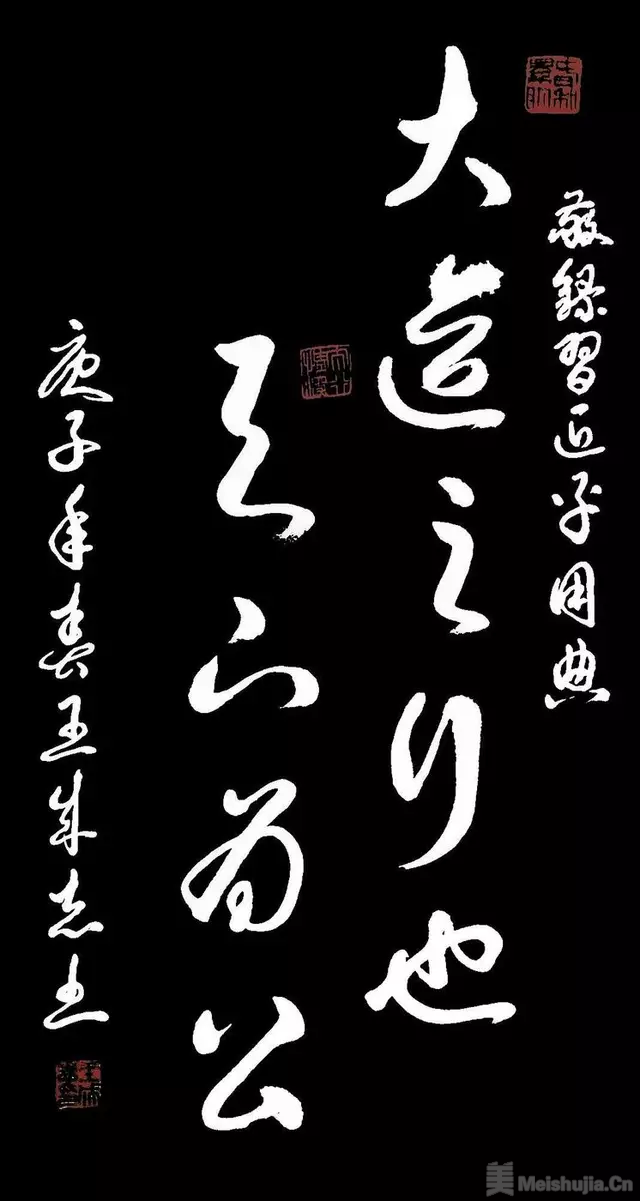 敬錄習近平用典
大道之行也
天下為公
庚子年春王成志
美 Meishujia.Cn